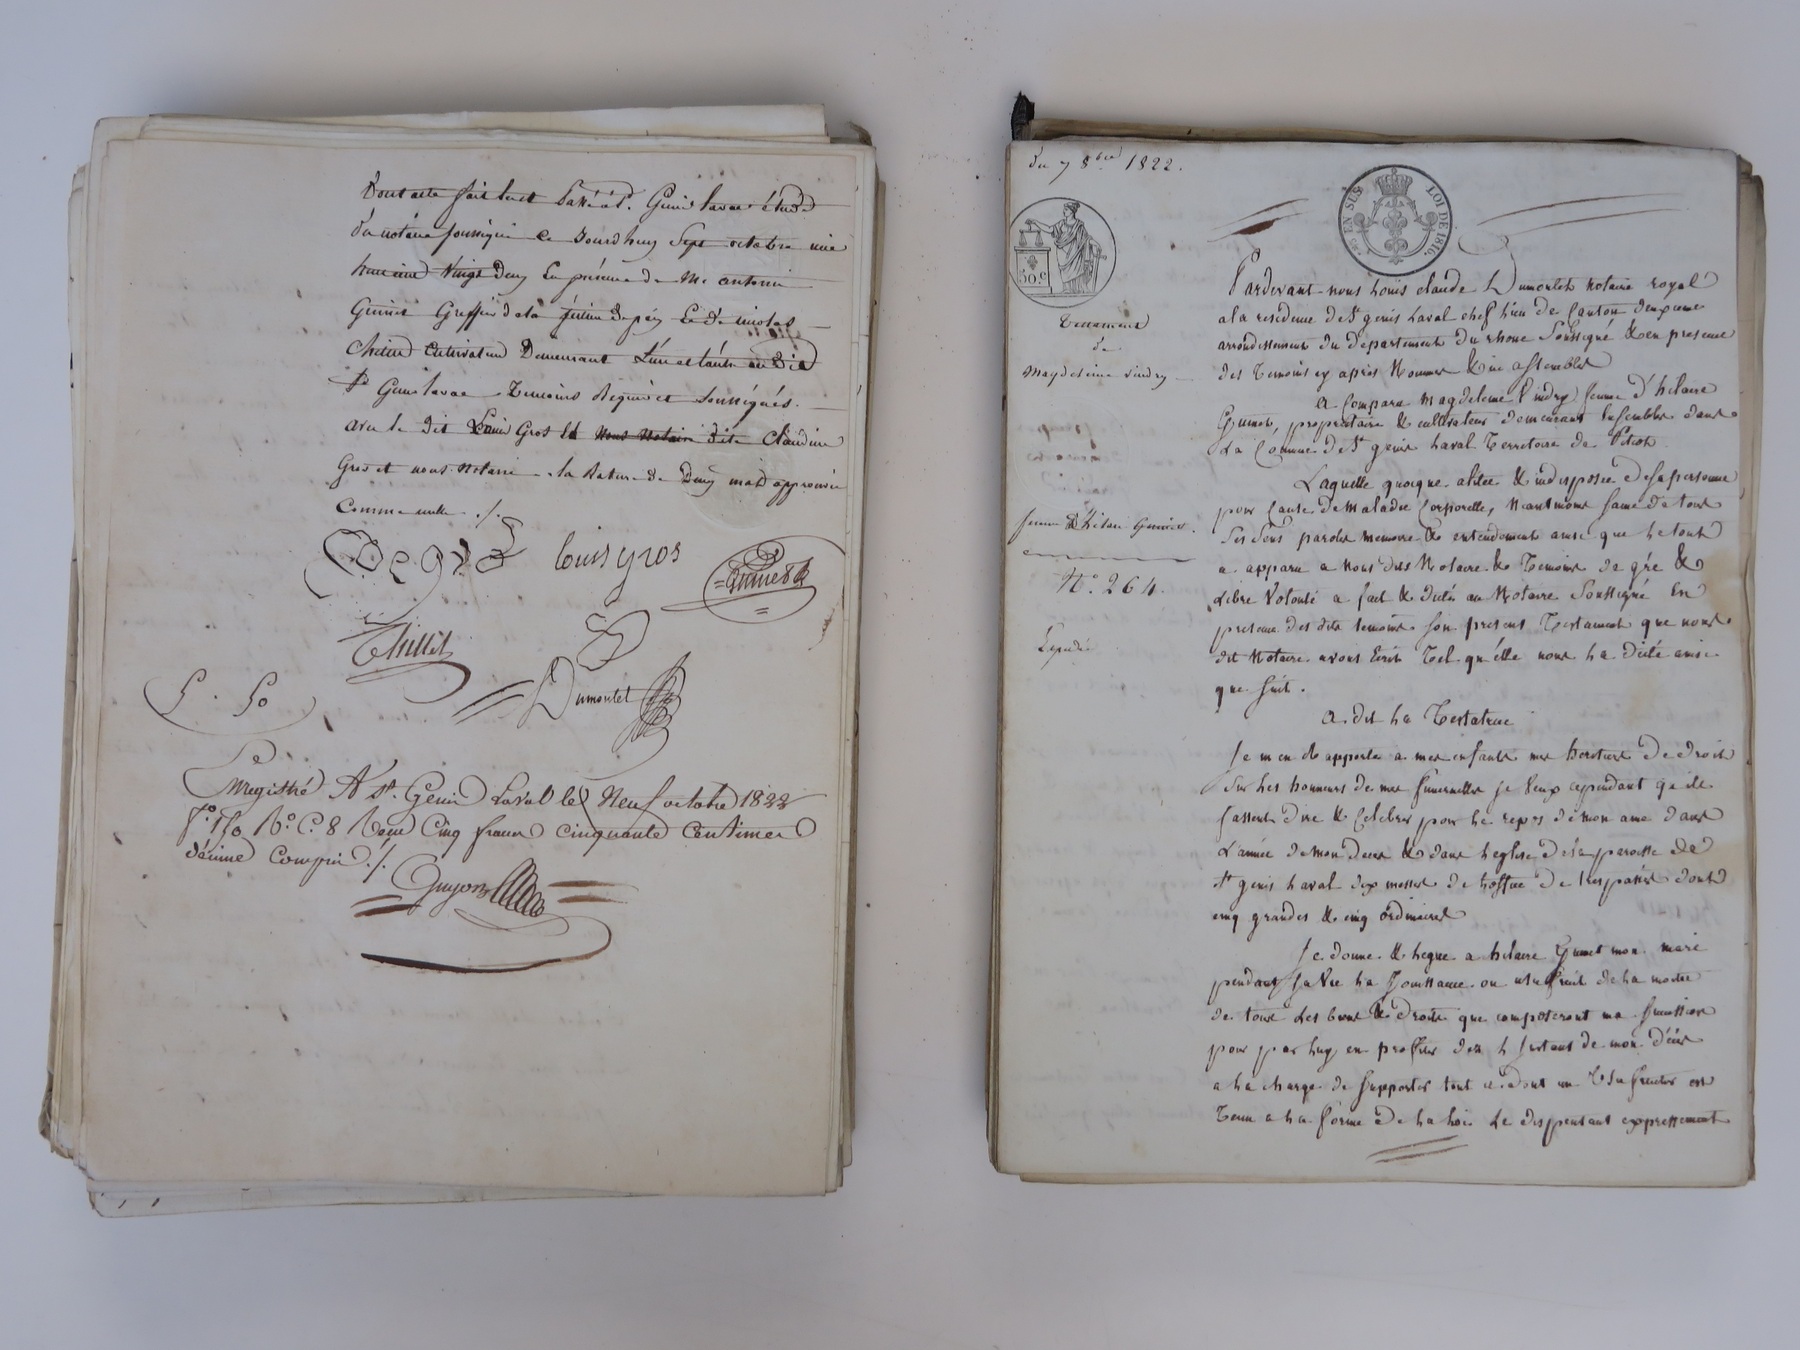 Dont acte fait lu et passé à St. Genis laval étude
du notaire soussigné ce Jourdhuy Sept octobre mil
huit cent Vingt Deux En présence de Mr antoine
Guinet Greffier de la Justice de paix Et De nicolas
Cultivateur Demeurant L'un et l'autre au dit
St Genis laval Temoins Requis et soussignés.
avec le dit Louis Gros et nous Notaire dite Claudine
Gros et nous Notaire . la Rature de Deux mots approuvée
comme nulle ./.
louis gros
Guinet
Thillet
Dumontet
5 . 50
Enregistré A St. Genis Laval le Neuf octobre 1822
fo. 150 Ro. C. 8 Reçu Cinq francs cinquante centimes
décime compris ./.
Guyon
du 7 8bre 1822.
50 c
EN SUS
LOI DE 1816.
Testament
de
Magdeleine Vindry
femme d'hilaire Guinet.
No. 264.
Expedié
Pardevant nous Louis claude Dumontet notaire royal
a la residence de St genis Laval chef lieu de Canton deuxieme
arrondissement du Departement du rhone Soussigné & en presence
des Temoins cy après Nommés &
A Comparu Magdeleine Vindry femme d'hilaire
Guinet, propriétaire & cultivateur demeurant Ensemble dans
La Commune de St genis Laval Territoire de
Laquelle quoique alitée & indisposée de sa personne
pour Cause de Maladie Corporelle, Neantmoins saine de tous
Ses Sens parole memoire & entendement ainsi que le tout
a apparu a nous dits Notaire & Temoins de gré &
Libre Volonté a fait & dicté au Notaire Soussigné En
presence des dits temoins son present Testament que nous
dit Notaire avons Ecrit Tel qu'elle nous la dicté ainsi
que suit.
A dit la Testatrice
Je m'en rapporte a mes enfants mes heritiers de droit
Sur les honneurs de mes funerailles je veux cependant qu'ils
fassent dire & Celebrer pour le repos de mon ame dans
L'année de mon deces & dans l'eglise de la paroisse de
St genis Laval dix messes de l'office de trespassés dont
cinq grandes & cinq ordinaires
Je donne & legue a hilaire Guinet mon mari
pendant sa vie la Jouissance ou usufruit de la moitié
de tous Les biens & droits que composeront ma succession
pour par luy en profiter dez l'Instant de mon décès
a la charge de Supporter tout ce dont un Usufruitier est
Tenu a la forme de la loi Le dispensant expressement